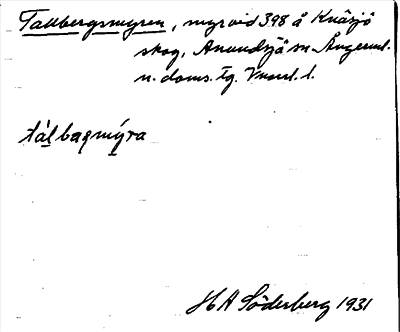 Tallbergsmyren, myr vid 398 å Knäsjö
skog, Anundsjö sn. Ångerml.
n. doms. tg. Vnorrl. l.
tál baqmýra
H A Söderberg 1931